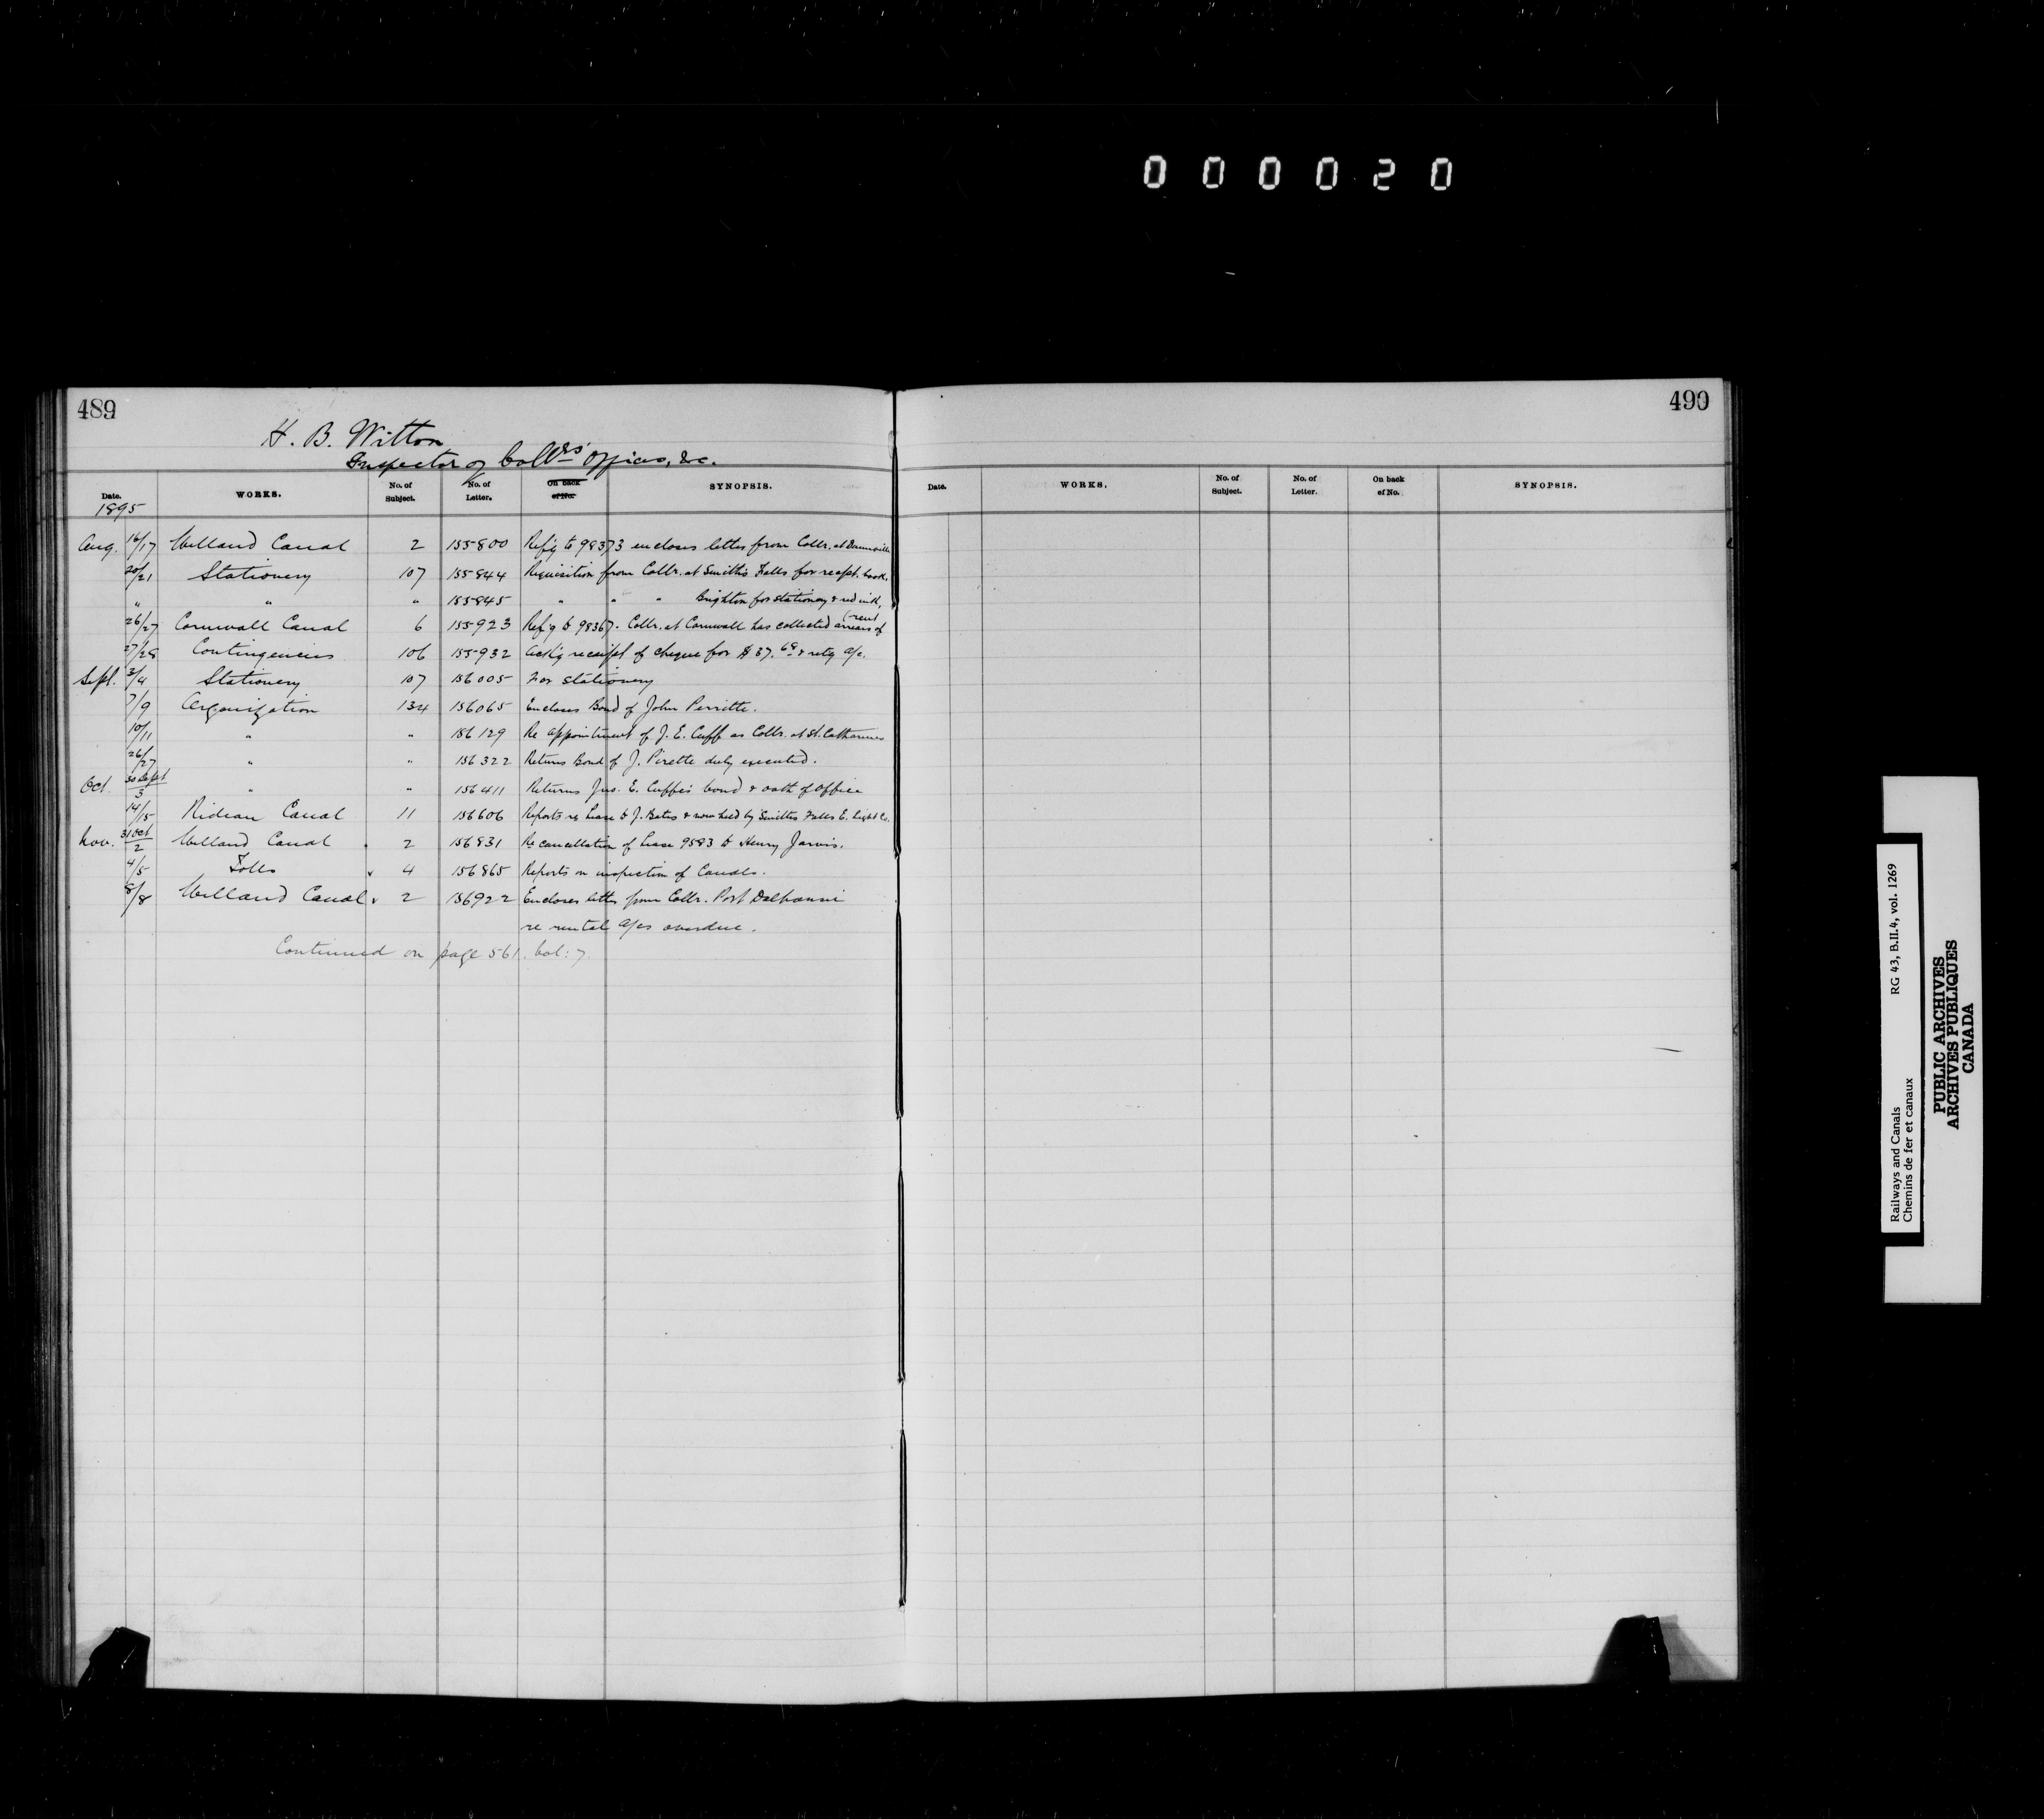 000020
489
H. B. Witton
Inspector of Collrs' Offices, &c.
Date. WORKS. No. of Subject. No. of Letter. On back of No. SYNOPSIS.
1895
Aug. 16/17 Welland Canal 2 155800 Ref'g to 98373 encloses letter from Collr. at Dunnville
20/21 Stationery 107 155844 Requisition from Collr. at Smith's Falls for recpt. book.
" " " 155845 " " " Brighton for stationery & red ink.
26/27 Cornwall Canal 6 155923 Ref'g to 98367. Collr. at Cornwall has collected arrears of (rent
27/28 Contingencies 106 155932 Ack'g receipt of cheque for $37.68 & retg a/c.
Sept. 3/4 Stationery 107 156005 For stationery
7/9 Organization 134 156065 Encloses Bond of John Perritte.
10/11 " " 156129 Re appointment of J. E. Cuff as Collr. at St. Catharines
26/27 " " 156322 Returns Bond of J. Pirette duly executed.
Oct. 30 Sept/3 " " 156411 Returns Jno. E. Cuff's bond & oath of office
14/15 Rideau Canal 11 156606 Reports re Lease to J. Bates & now held by Smiths Falls E. Light Co.
Nov. 31 Oct/2 Welland Canal 2 156831 Re cancellation of Lease 9583 to Henry Jarvis.
4/5 Tolls 4 156865 Reports on inspection of Canals.
8/8 Welland Canal 2 156922 Encloses letter from Collr. Port Dalhousie
re rental a/cs overdue.
Continued on page 561. Vol: 7.
490
Date. WORKS. No. of Subject. No. of Letter. On back of No. SYNOPSIS.
Railways and Canals RG 43, B.II.4, vol. 1269
Chemins de fer et canaux
PUBLIC ARCHIVES
ARCHIVES PUBLIQUES
CANADA